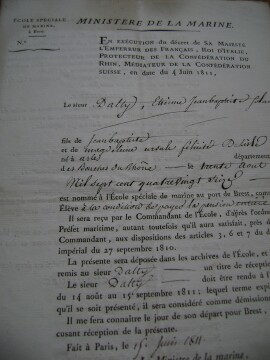 ÉCOLE SPÉCIALE
DE MARINE,
à Brest.
N.°
MINISTÈRE DE LA MARINE.
EN exécution du décret de SA MAJESTÉ
L'EMPEREUR DES FRANÇAIS, ROI D'ITALIE,
PROTECTEUR DE LA CONFÉDÉRATION DU
RHIN, MÉDIATEUR DE LA CONFÉDÉRATION
SUISSE, en date du 4 Juin 1811,
Le sieur Dalty, Etienne jeanbaptiste
fils de jeanbaptiste
et de magdelaine ursule félicité
né à arles département
des Bouches du Rhône le trente août
Mil sept cent quatre vingt
est nommé à l'École spéciale de marine au port de Brest,
Élève à la condition de payer la pension entière
Il sera reçu par le Commandant de l'École, d'après l'ordre
Préfet maritime, autant toutefois qu'il aura satisfait, pour
Commandant, aux dispositions des articles 3, 6 et 7 du
impérial du 27 septembre 1810.
La présente sera déposée dans les archives de l'École, et
remis au sieur Dalty un titre de réception
Le sieur Dalty devra être
du 14 août au 15 septembre 1811; lequel terme expiré
qu'il se soit présenté, il sera considéré comme démission
Il me fera connaître le jour de son départ pour Brest,
cusant réception de la présente.
Fait à Paris, le 15 juin 1811
de la marine.